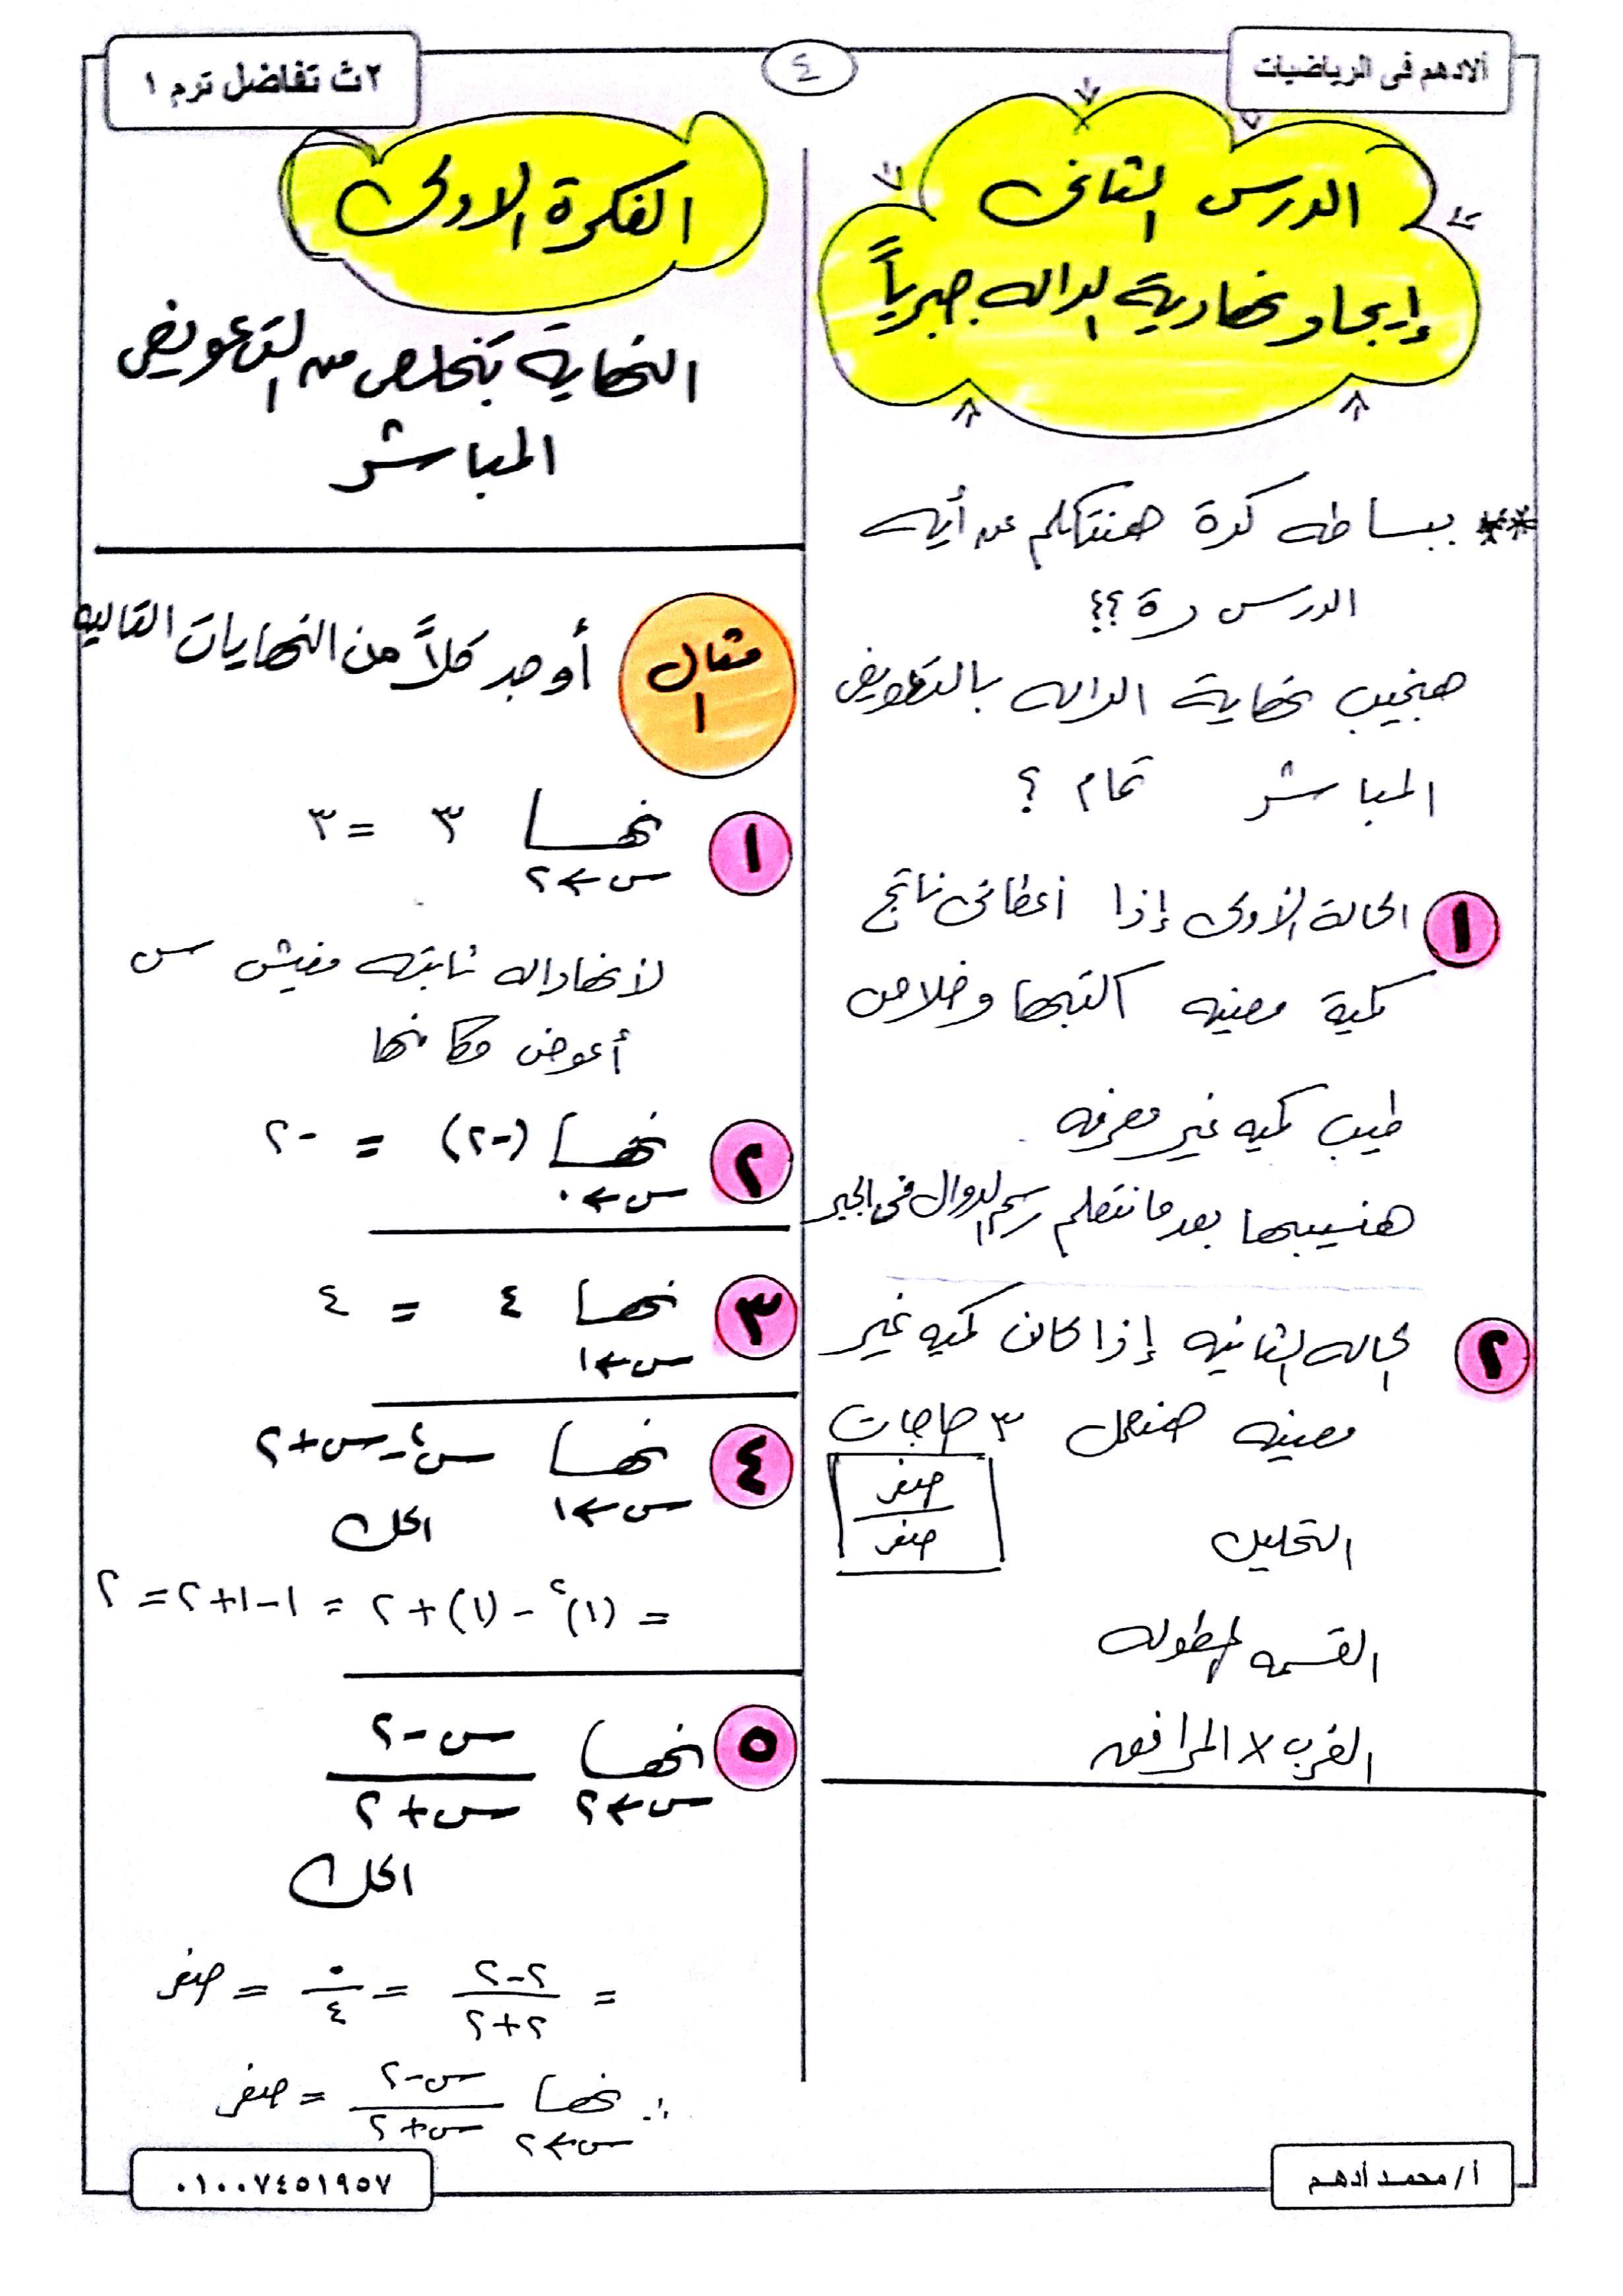 ألادهم فى الرياضيات
٤
٢ث تفاضل ترم ١
الدرس الثانى
إيجاد نهاية الداله جبرياً
** ببساطه كدة هنتكلم عن أيه
الدرس دة ؟؟
هنجيب نهاية الداله بالتعويض
المباشر تمام ؟
١ الحالة الأولى إذا أعطانى ناتج
كمية معينه اكتبها وخلاص
طيب كميه غير معرفه
هنسيبها بعد ما نتعلم رسم الدوال فى الجبر
٢ الحاله الثانيه إذا كانت كميه غير
معينه هنعمل ٣ حاجات
صفر/صفر
التحليل
القسمه المطوله
الضرب × المرافق
الفكرة الاولى
النهاية تتخلص من التعويض
المباشر
مثال ١ أوجد كلاً من النهايات التاليه
١ نهـــا س←٢ ٣ = ٣
لأنها داله ثابته مفيش س
أعوض مكانها
٢ نهـــا س←٠ (-٢) = -٢
٣ نهـــا س←١ ٤ = ٤
٤ نهـــا س←١ س٢-س+٢
الحل
= (١)٢ - (١) + ٢ = ١-١+٢ = ٢
٥ نهـــا س←٢ س-٢/س+٢
الحل
= ٢-٢/٢+٢ = ٠/٤ = صفر
∴ نهـــا س←٢ س-٢/س+٢ = صفر
أ/ محمد أدهم
٠١٠٠٧٤٥١٩٥٧